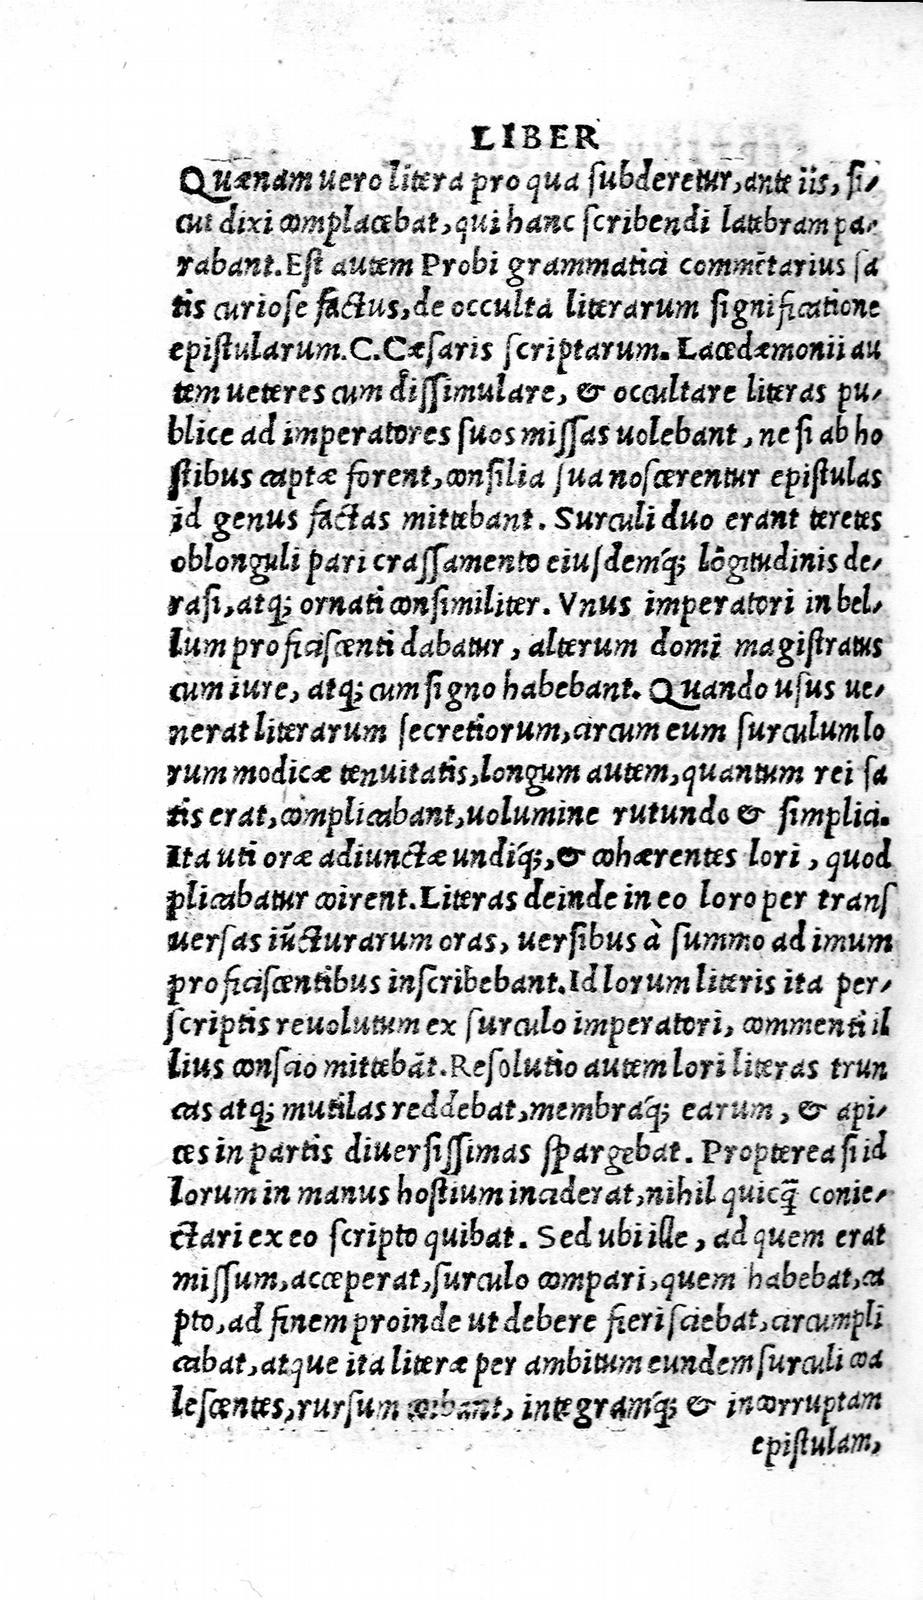 LIBER
Quænam uero litera pro qua subderetur, ante iis, si-
cut dixi complacebat, qui hanc scribendi latebram pa-
rabant. Est autem Probi grammatici commētarius sa
tis curiose factus, de occulta literarum significatione
epistularum. C. Cæsaris scriptarum. Lacedæmonii au
tem ueteres cum dissimulare, & occultare literas pu-
blice ad imperatores suos missas uolebant, ne si ab ho
stibus captæ forent, consilia sua noscerentur epistulas
id genus factas mittebant. Surculi duo erant teretes
oblonguli pari crassamento eiusdemq́; lōgitudinis de-
rasi, atq; ornati consimiliter. Vnus imperatori in bel-
lum proficiscenti dabatur, alterum domi magistratus
cum iure, atq; cum signo habebant. Quando usus ue-
nerat literarum secretiorum, circum eum surculum lo
rum modicæ tenuitatis, longum autem, quantum rei sa
tis erat, complicabant, uolumine rutundo & simplici.
Ita uti oræ adiunctæ undiq́;, & cohærentes lori, quod
plicabatur coirent. Literas deinde in eo loro per trans
uersas iūcturarum oras, uersibus à summo ad imum
proficiscentibus inscribebant. Id lorum literis ita per-
scriptis reuolutum ex surculo imperatori, commenti il
lius conscio mittebāt. Resolutio autem lori literas trun
cas atq; mutilas reddebat, membraq́; earum, & api-
ces in partis diuersissimas spargebat. Propterea si id
lorum in manus hostium inciderat, nihil quicq̄ conie-
ctari ex eo scripto quibat. Sed ubi ille, ad quem erat
missum, acceperat, surculo compari, quem habebat, ca
pto, ad finem proinde ut debere fieri sciebat, circumpli
cabat, atque ita literæ per ambitum eundem surculi coa
lescentes, rursum coibant, integramq́; & incorruptam
epistulam,